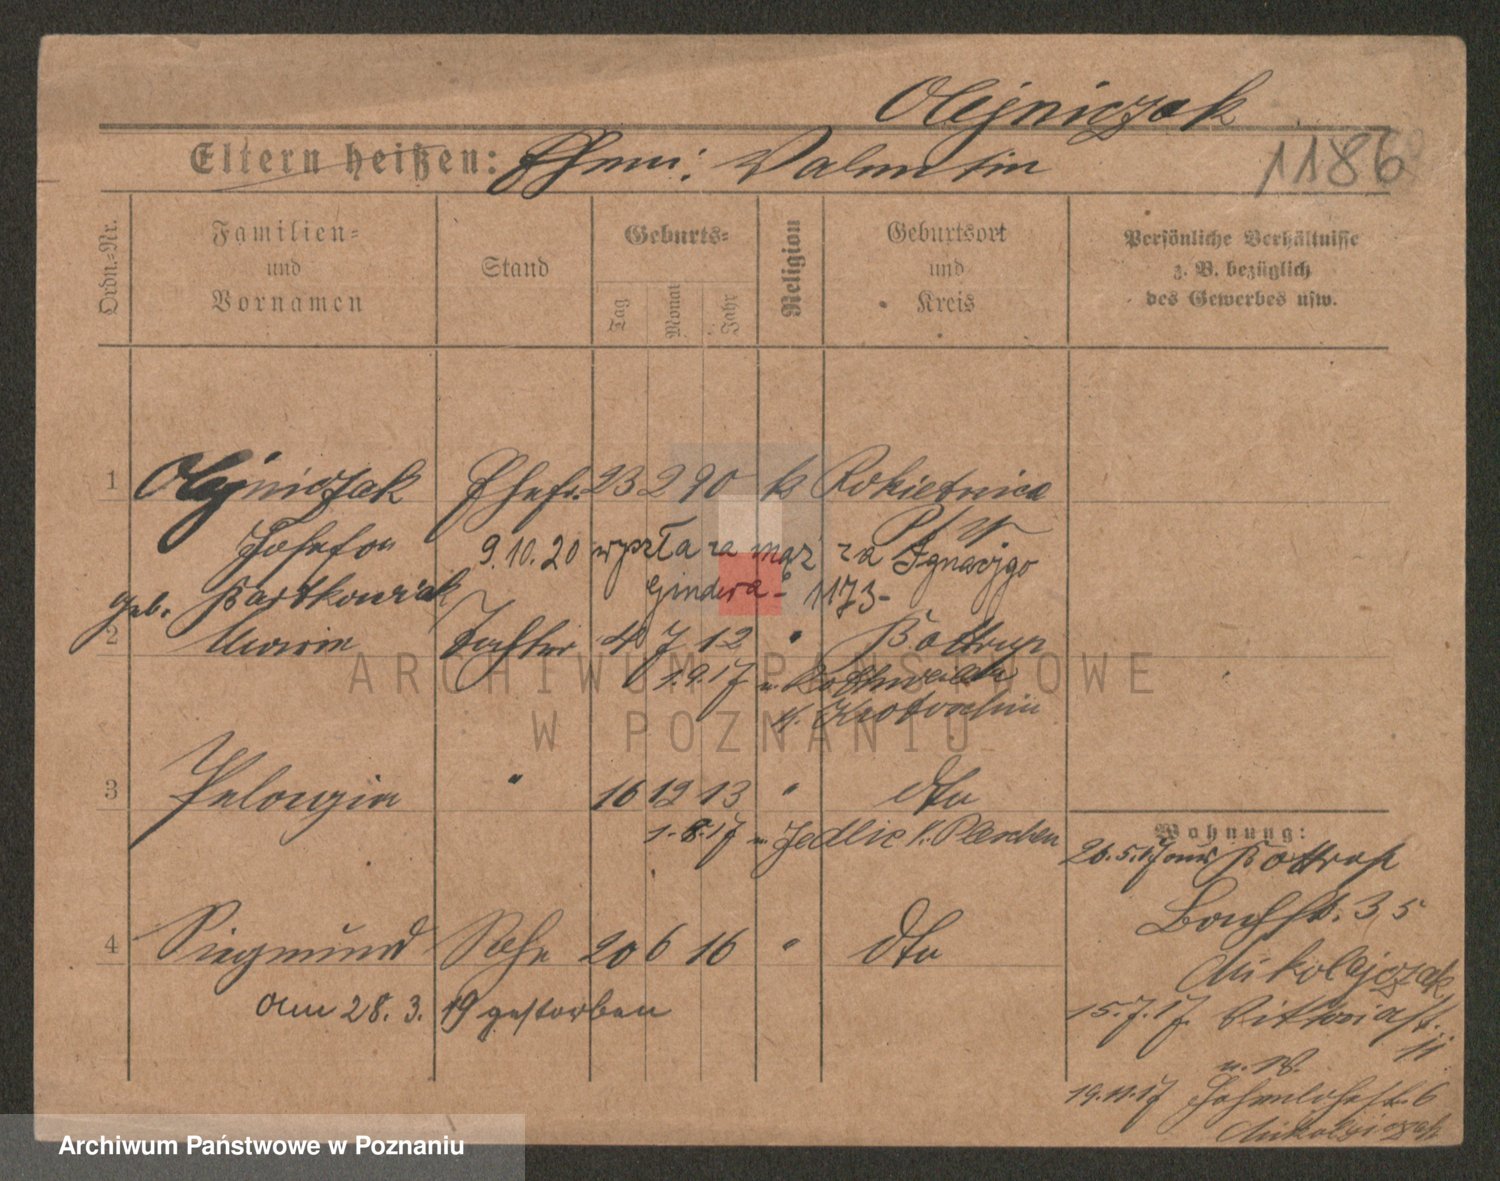 Olejniczak
Eltern heißen: Ehem: Valentin 1186
Ordn.-Nr.
Familien-
und
Vornamen
Stand
Geburts-
Tag
Monat
Jahr
Religion
Geburtsort
und
Kreis
Persönliche Verhältnisse
z. B. bezüglich
des Gewerbes usw.
1 Olejniczak Ehefr. 23 2 90 k Rokietnica
Josefa
9.10.20 wyszła za mąż za Ignacego
geb. Bartkowiak
Gindera 1173-
2 Maria Tochter 4 7 12 " Bottrop
1.9.17 n.
K. Krotoschin
3 Pelagia " 16 12 13 " dto
1.8.17 n. Jedlic K. Pleschen
4 Siegmund Sohn 20 6 16 " dto
am 28.3.19 gestorben
Wohnung:
26.5.17 aus Bottrop
35
Mikolajczak
15.7.17 Viktoriast.
11
19.11.17 Hohenlohest. 6
Mikolajczak
ARCHIWUM PAŃSTWOWE
W POZNANIU
Archiwum Państwowe w Poznaniu